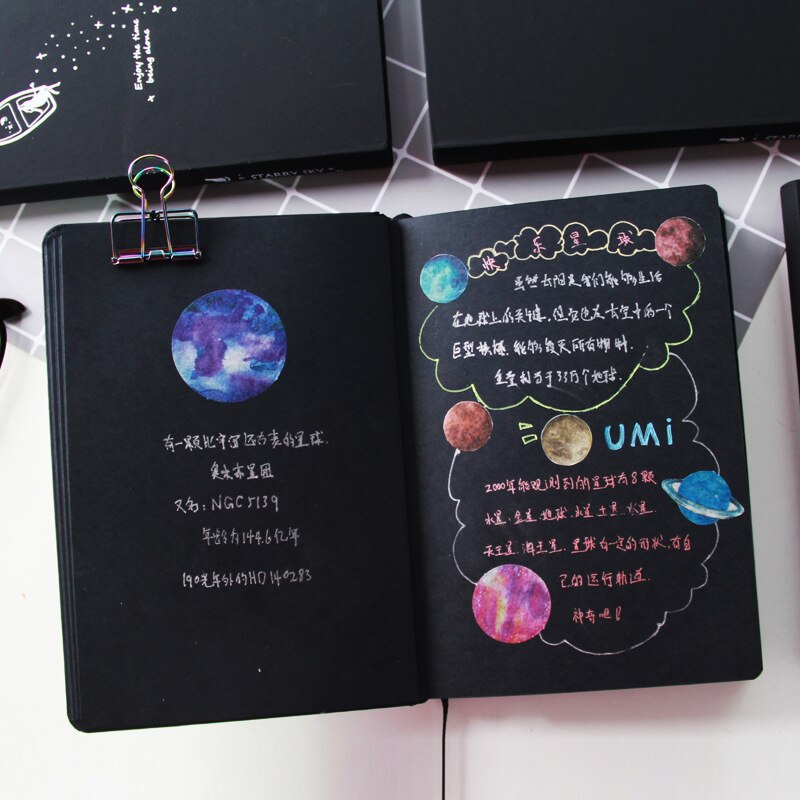 Enjoy the time
being alone
STARRY SKY
有一颗比宇宙还古老的星球.
又名: NGC 5139
年龄为144.6亿年
190光年外的HD 140283
快乐星球
虽然太阳是我们能够生活
在地球上的关键, 但它也是太空中的一个
巨型核爆, 能够毁灭所有物种.
质量相当于33万个地球.
UMi
2000年能观测到的星球有8颗
水星. 金星. 地球. 火星. 土星. 木星.
天王星. 海王星. 星球有一定的形状, 有自
己的运行轨道.
神奇吧!